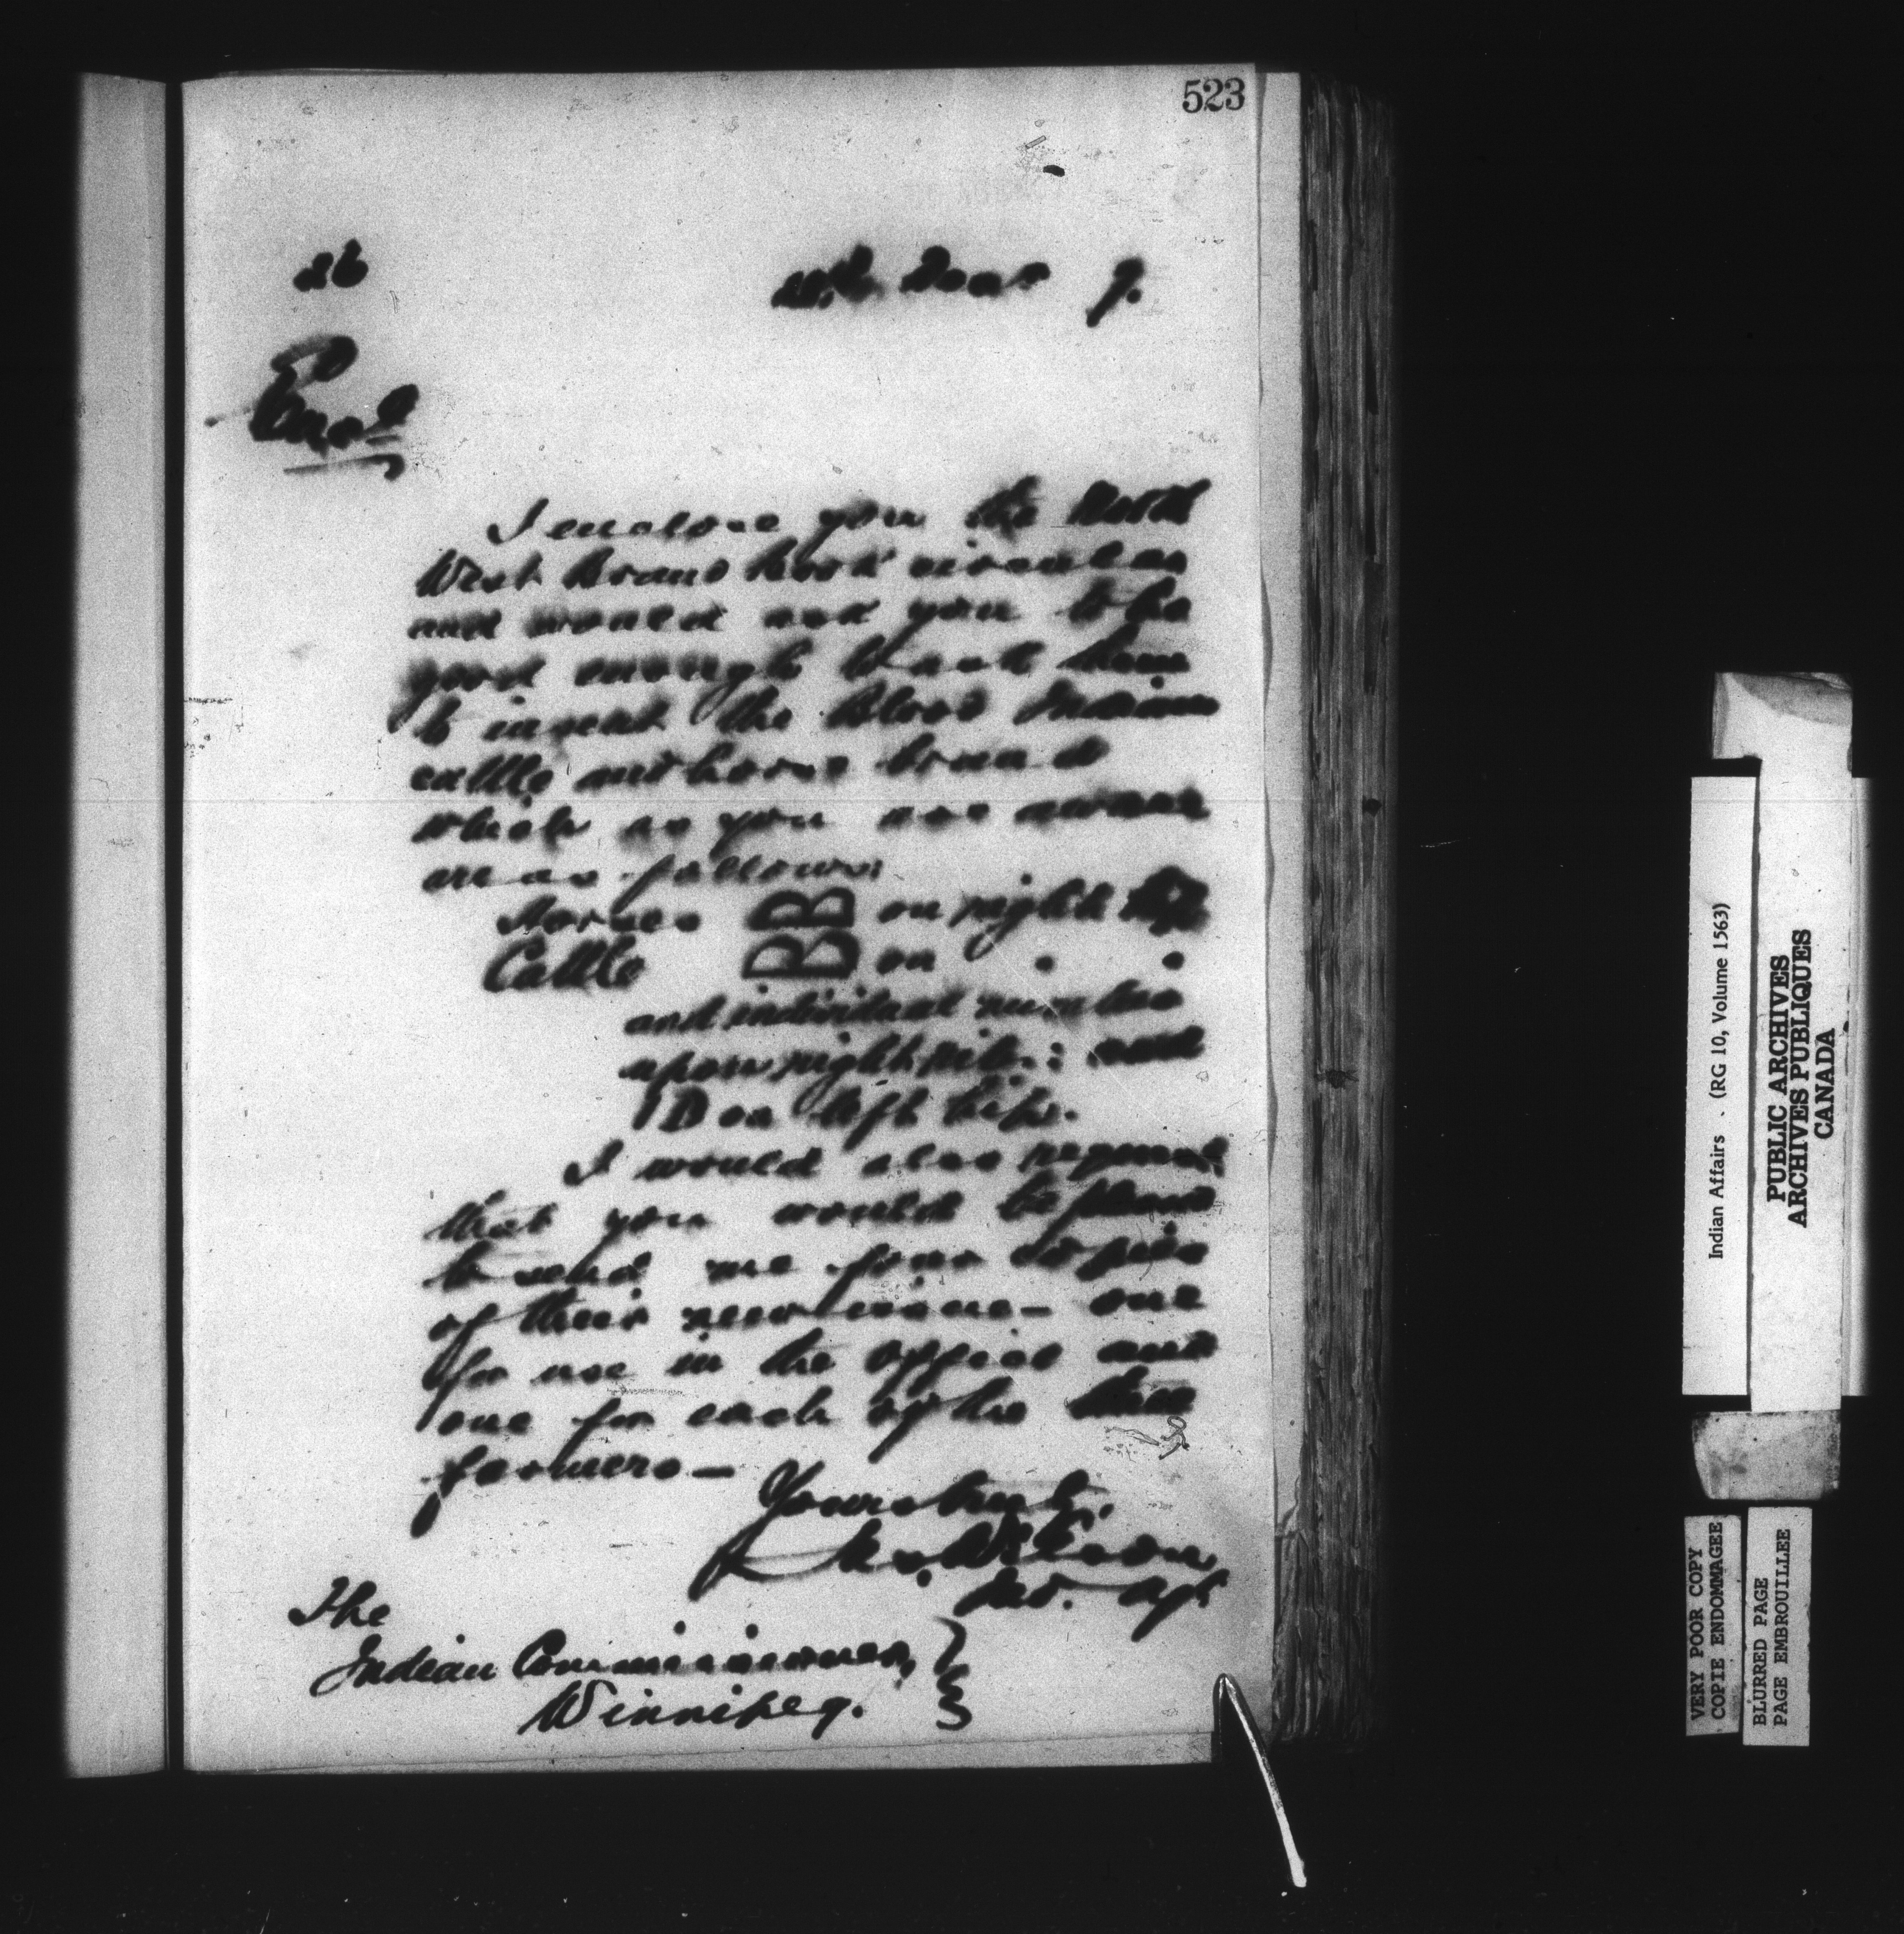 523
26
9.
Encl
I enclose you the North
West Brand book circular
and would ask you to be
good enough to ask them
to insert the Blood Indian
cattle and horse brand
which as you are aware
are as follows:
Horses BB on right hip
Cattle BB on " "
and individual number
upon right rib: and
ID on left hip.
I would also request
that you would be pleased
to send me four copies
of their new issue - one
for use in the office and
one for each of the three
farmers -
Yours truly.
Jas. Wilson
Ind. Agt
The
Indian Commissioner,
Winnipeg.
Indian Affairs . (RG 10, Volume 1563)
PUBLIC ARCHIVES
ARCHIVES PUBLIQUES
CANADA
VERY POOR COPY
COPIE ENDOMMAGEE
BLURRED PAGE
PAGE EMBROUILLEE